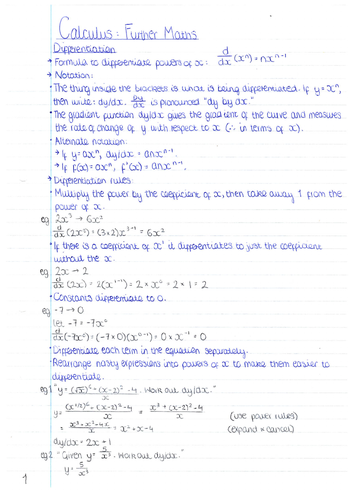 Calculus: Further Maths
Differentiation
→ Formula to differentiate powers of x: d/dx (xⁿ) = nxⁿ⁻¹
→ Notation:
· The thing inside the brackets is what is being differentiated. If y = xⁿ,
then write: dy/dx. dy/dx is pronounced "dy by dx."
· The gradient function dy/dx gives the gradient of the curve and measures
the rate of change of y with respect to x (∴ in terms of x).
· Alternate notation:
→ If y = axⁿ, dy/dx = anxⁿ⁻¹.
→ If f(x) = axⁿ, f'(x) = anxⁿ⁻¹.
→ Differentiation rules:
· Multiply the power by the coefficient of x, then take away 1 from the
power of x.
eg 2x³ → 6x²
d/dx (2x³) = (3×2)x³⁻¹ = 6x²
· If there is a coefficient of x¹ it differentiates to just the coefficient
without the x.
eg 2x → 2
d/dx (2x) = 2(x¹⁻¹) = 2 × x⁰ = 2 × 1 = 2
· Constants differentiate to 0.
eg -7 → 0
let -7 = -7x⁰
d/dx (-7x⁰) = (-7×0)(x⁰⁻¹) = 0 × x⁻¹ = 0
· Differentiate each term in the equation separately.
· Rearrange nasty expressions into powers of x to make them easier to
differentiate.
eg 1 "y = (√x)⁶ + (x-2)² - 4 / x. Work out dy/dx."
y = (x^1/2)⁶ + (x-2)² - 4 / x = x³ + (x-2)² - 4 / x (use power rules)
= x³ + x² - 4x / x = x² + x - 4 (expand & cancel)
dy/dx = 2x + 1
eg 2 "Given y = 5/x³. Work out dy/dx."
y = 5/x³
1